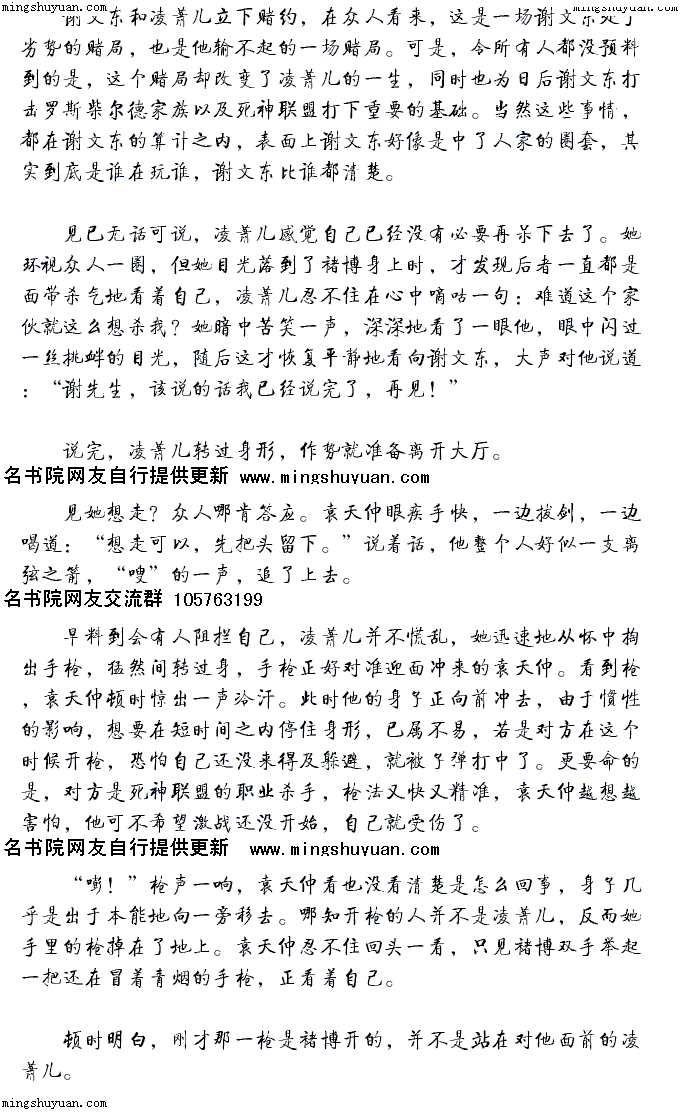 mingshuyuan.com
mingshuyuan.com
谢文东和凌萧儿立下赌约，在众人看来，这是一场谢文东处于
劣势的赌局，也是他输不起的一场赌局。可是，令所有人都没预料
到的是，这个赌局却改变了凌萧儿的一生，同时也为日后谢文东打
击罗斯柴尔德家族以及死神联盟打下重要的基础。当然这些事情，
都在谢文东的算计之内，表面上谢文东好像是中了人家的圈套，其
实到底是谁在玩谁，谢文东比谁都清楚。
见已无话可说，凌萧儿感觉自己已经没有必要再呆下去了。她
环视众人一圈，但她目光落到了褚博身上时，才发现后者一直都是
面带杀气地看着自己，凌萧儿忍不住在心中嘀咕一句：难道这个家
伙就这么想杀我？她暗中苦笑一声，深深地看了一眼他，眼中闪过
一丝挑衅的目光，随后这才恢复平静地看向谢文东，大声对他说道
：“谢先生，该说的话我已经说完了，再见！”
说完，凌萧儿转过身形，作势就准备离开大厅。
名书院网友自行提供更新 www.mingshuyuan.com
见她想走？众人哪肯答应。袁天仲眼疾手快，一边拔剑，一边
喝道：“想走可以，先把头留下。”说着话，他整个人好似一支离
弦之箭，“嗖”的一声，追了上去。
名书院网友交流群 105763199
早料到会有人阻拦自己，凌萧儿并不慌乱，她迅速地从怀中掏
出手枪，猛然间转过身，手枪正好对准迎面冲来的袁天仲。看到枪
，袁天仲顿时惊出一声冷汗。此时他的身子正向前冲去，由于惯性
的影响，想要在短时间之内停住身形，已属不易，若是对方在这个
时候开枪，恐怕自己还没来得及躲避，就被子弹打中了。更要命的
是，对方是死神联盟的职业杀手，枪法又快又精准，袁天仲越想越
害怕，他可不希望激战还没开始，自己就受伤了。
名书院网友自行提供更新 www.mingshuyuan.com
“嘭！”枪声一响，袁天仲看也没看清楚是怎么回事，身子几
乎是出于本能地向一旁移去。哪知开枪的人并不是凌萧儿，反而她
手里的枪掉在了地上。袁天仲忍不住回头一看，只见褚博双手举起
一把还在冒着青烟的手枪，正看着自己。
顿时明白，刚才那一枪是褚博开的，并不是站在对他面前的凌
萧儿。
mingshuyuan.com